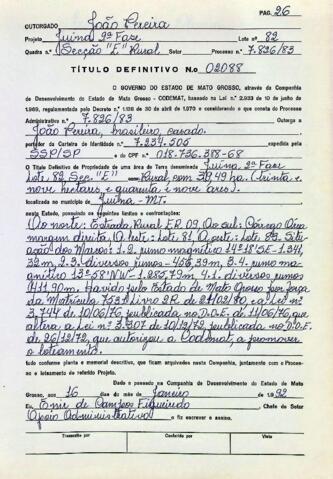 PAG. 26
OUTORGADO João Pereira
Projeto Juina 2ª Fase Lote n.º 82
Quadra n.º (Secção "E") Rural Setor Processo n.º 7.826/83
TÍTULO DEFINITIVO N.o 02088
O GOVERNO DO ESTADO DE MATO GROSSO, através da Companhia
de Desenvolvimento do Estado de Mato Grosso - CODEMAT, baseado na Lei n.º 2.933 de 10 de junho de
1969, regulamentada pelo Decreto n.º 1.128 de 30 de abril de 1970 e considerando o que consta do Processo
Administrativo n.º 7.826/83 Outorga a
João Pereira, brasileiro, casado.
portador da Carteira de Identidade n.º 7.234.505 expedida pela
SSP/SP e do CPF n.º 018.726.388-68
O Título Definitivo de Propriedade de uma área de Terra denominada Juina, 2ª Fase
Lote: 82, Sec. "E" Rural, com 39,49 ha. (trinta e
nove hectares e quarenta e nove ares).
localizada no município de Juina - MT.
neste Estado, possuindo os seguintes limites e confrontações:
Ao norte: Estrada Rural E.R. 09. Ao sul: Córrego
margem direita. A leste: Lote: 81. A oeste: Lote: 83.
1.2. rumo magnético
2.3. diversos rumos 3.4. rumo
magnético 13º58'NW - 1.285,79m. 4.1. diversos rumos
411,90m. Havido pelo Estado de Mato Grosso por força
da Matrícula 753 Livro 2R de 27/02/80, e Lei nº
3.744 de 10/06/76 publicada no D.O.E. de 11/06/76, que
altera a Lei nº 3.307 de 18/12/72 publicada no D.O.E.
de 26/12/72, que autorizou a Codemat, a promover
o loteamento.
tudo conforme planta e memorial descritivo, que ficam arquivados nesta Companhia, juntamente com o Processo
e loteamento do referido Projeto.
Dado e passado na Companhia de Desenvolvimento do Estado de Mato
Grosso, aos 16 dias do mês de Janeiro de 1992
Eu Enir de Campos Figueiredo, Chefe do Setor
(Apoio Administrativo) o fiz escrever e assino.
Transcrito por Conferido por Visto